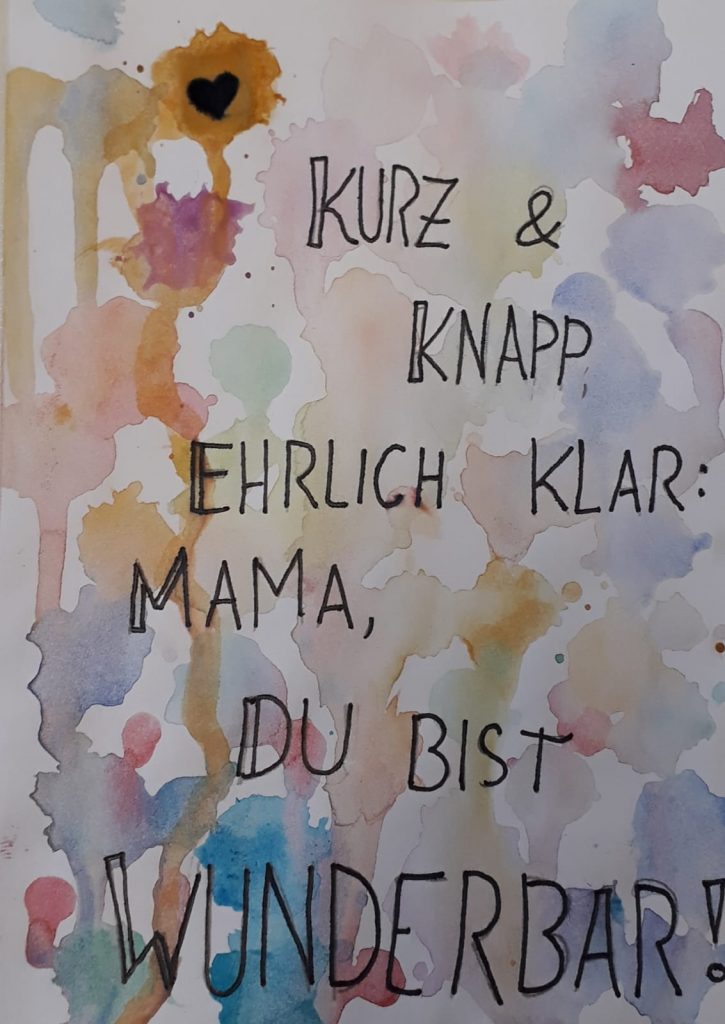 KURZ &
KNAPP,
EHRLICH KLAR:
MAMA,
DU BIST
WUNDERBAR!